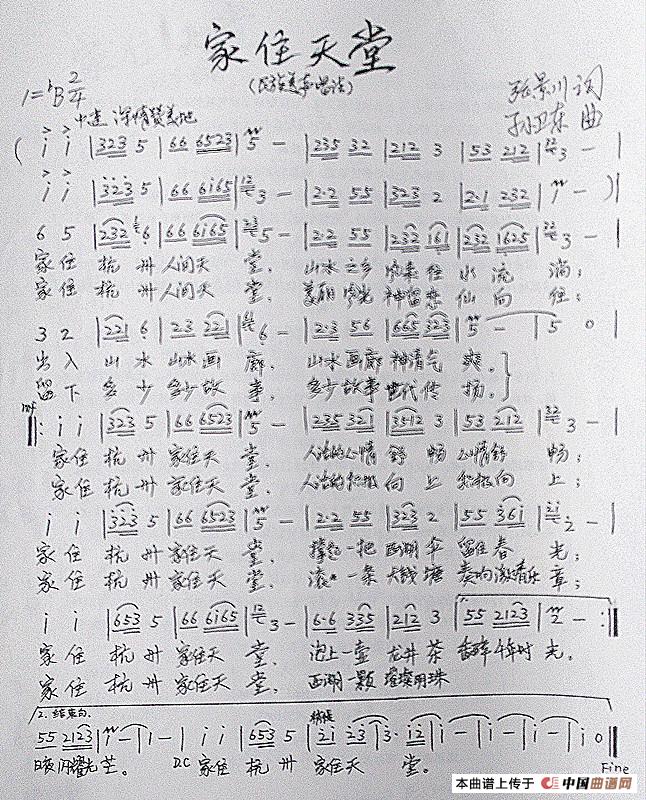 家住天堂
(民族美声唱法)
1=ᵇB 2/4
中速 深情赞美地
张景川 词
孙卫东 曲
( i i | 323 5 | 66 6523 | 5 - | 235 32 | 212 3 | 53 212 | 3 - |
i i | 323 5 | 66 6i65 | 3 - | 2·2 55 | 323 2 | 2·1 232 | 1 - )|
6 5 | 232 6 | 66 6i65 | 5 - | 2·2 55 | 232 161 | 232 1625 | 3 - |
家住 杭州 人间天 堂, 山水之乡 水流淌;
家住 杭州 人间天 堂, 美丽 神 仙向往;
3 2 | 221 6 | 2·3 221 | 6 - | 2·3 56 | 665 323 | 5 - | 5 0 |
出入 山水 山水画 廊, 山水画廊 神清气 爽。
留下 多少 多少故 事, 多少故事 世代传 扬。
mf
i i | 323 5 | 66 6523 | 5 - | 235 321 | 3512 3 | 53 212 | 3 - |
家住 杭州 家住天 堂, 人活的心情 舒畅 心情舒 畅;
家住 杭州 家住天 堂, 人活的积极 向上 积极向 上;
i i | 323 5 | 66 6523 | 5 - | 2·2 55 | 323 2 | 55 36i | 2 - |
家住 杭州 家住天 堂, 撑起一把 西湖伞 留住春 光;
家住 杭州 家住天 堂, 滚 一条 大钱塘 奏响激情乐 章;
i i | 653 5 | 66 6i65 | 3 - | 6·6 335 | 212 3 | 55 2123 | 2 - :|
家住 杭州 家住天 堂, 泡上一壶 龙井茶 香醉 时光。
家住 杭州 家住天 堂, 西湖一颗 璀璨明珠
2. 结束句.
55 2123 | i - | i - | i i | 653 5 | 2i 23 | 3· i2 | i - | i - | i - | i 0 ‖
日夜闪耀光芒。 D.C 家住 杭州 家住天 堂。
Fine
本曲谱上传于 中国曲谱网